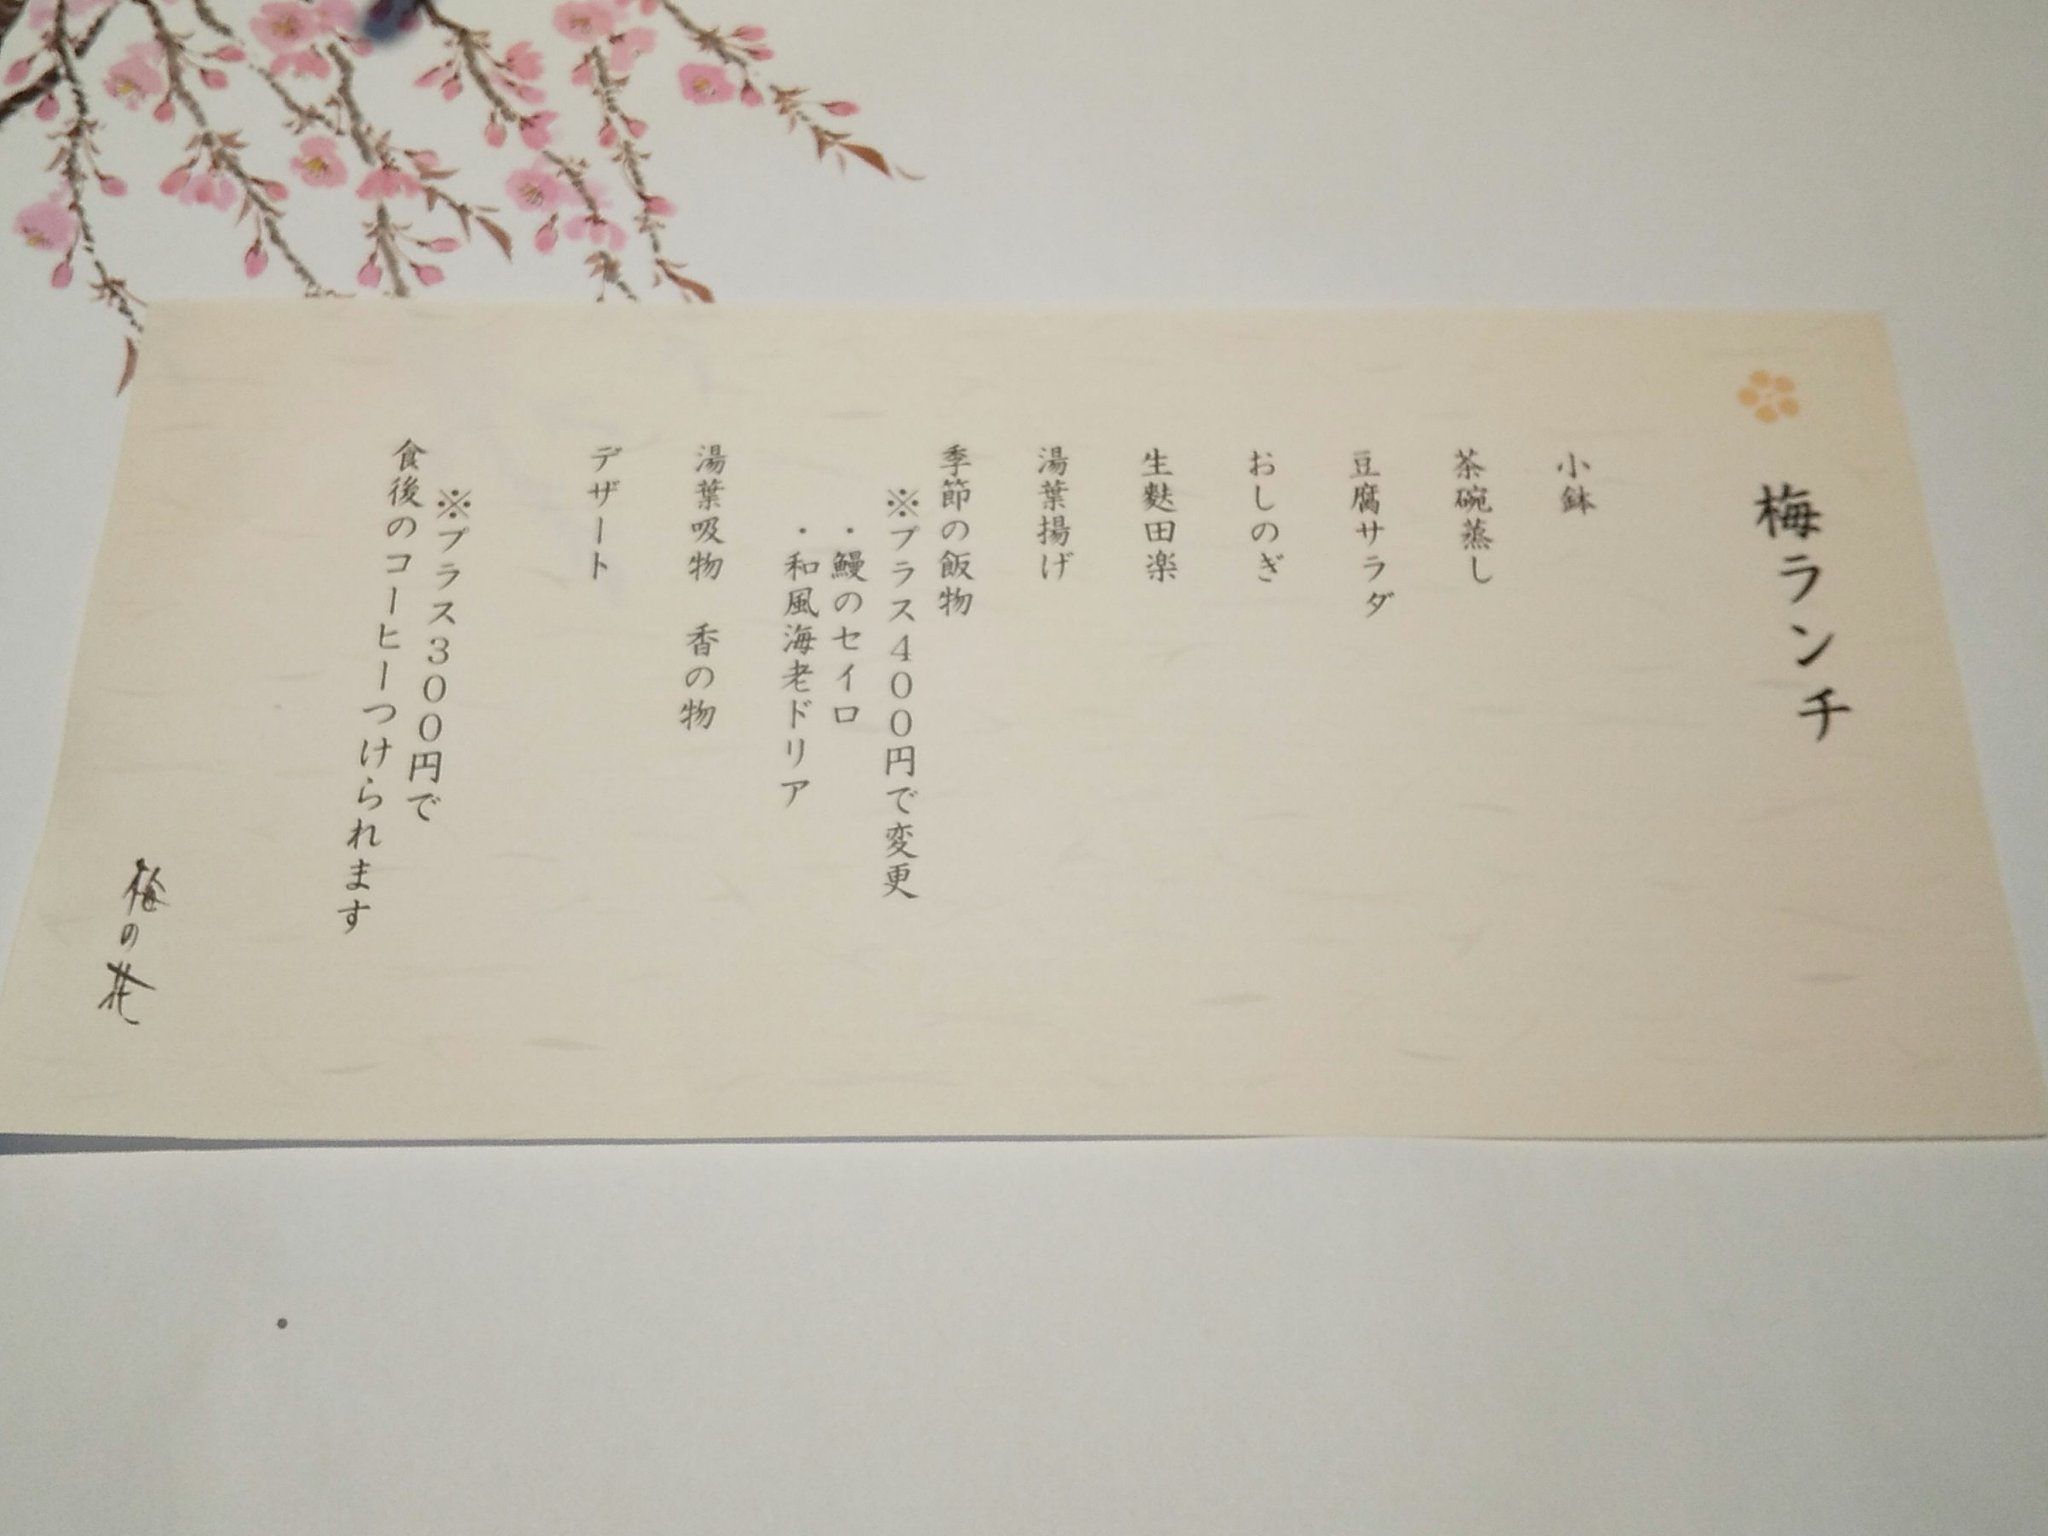 梅ランチ
小鉢
茶碗蒸し
豆腐サラダ
おしのぎ
生麩田楽
湯葉揚げ
季節の飯物
※プラス４００円で変更
・鰻のセイロ
・和風海老ドリア
湯葉吸物　香の物
デザート
※プラス３００円で
食後のコーヒーつけられます
梅の花